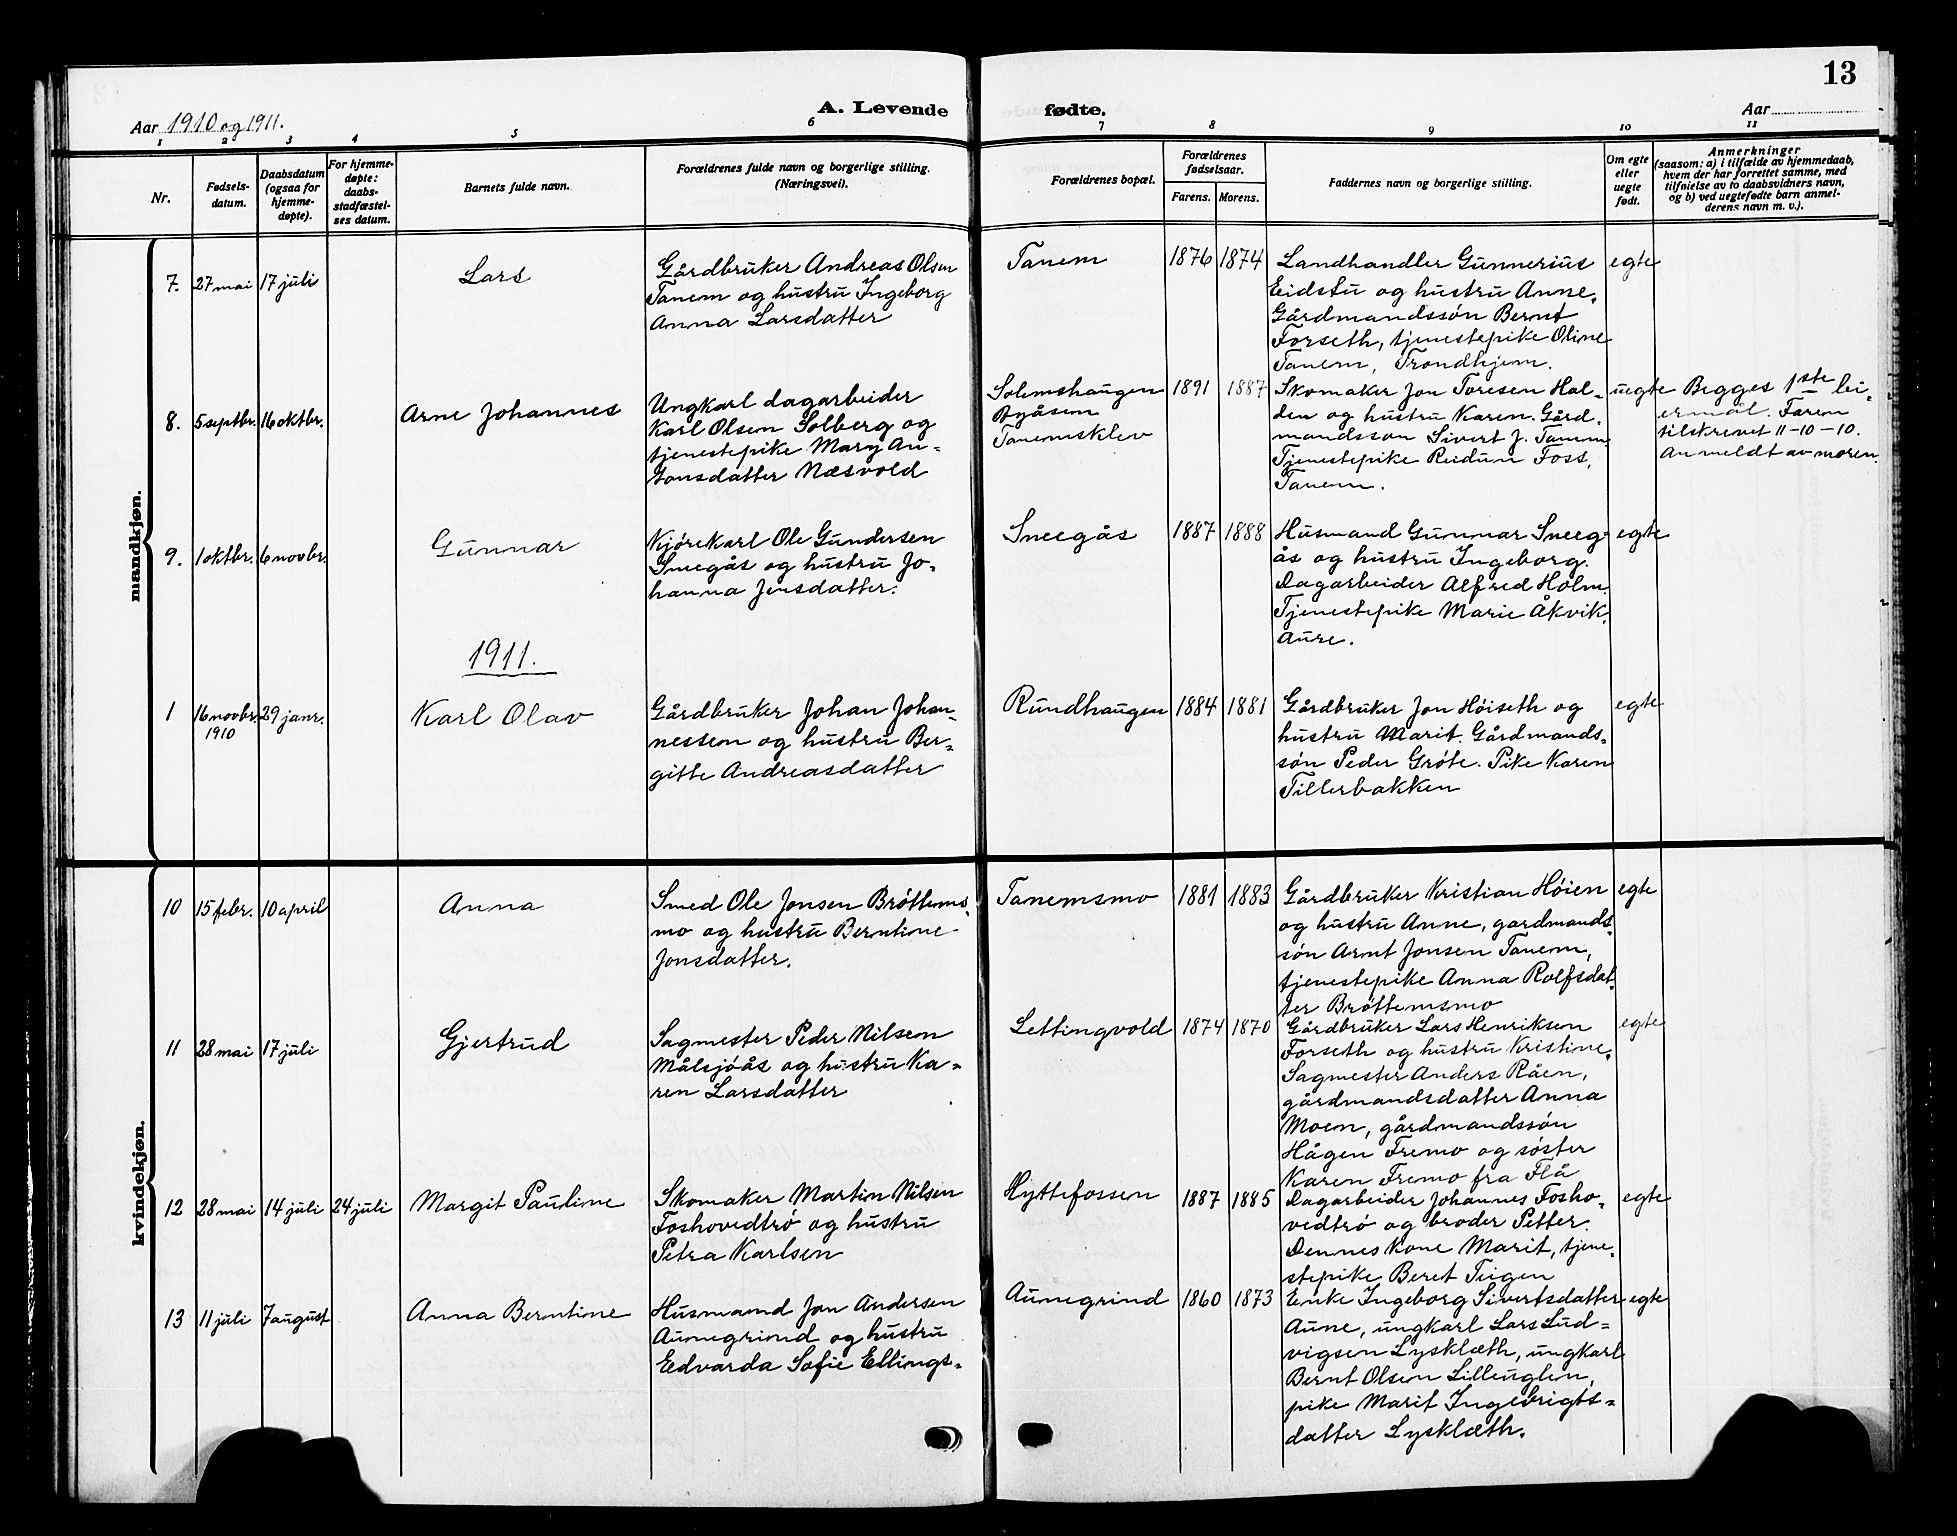 13
A. Levende fødte.
Aar 1910 og 1911.
Aar
1 2 3 4 5 6 7 8 9 10 11
Nr.
Fødsels-
datum.
Daabsdatum
(ogsaa for
hjemme-
døpte).
For hjemme-
døpte:
daabs-
stadfæstel-
ses datum.
Barnets fulde navn.
Forældrenes fulde navn og borgerlige stilling.
(Næringsvei).
Forældrenes bopæl.
Forældrenes
fødselsaar.
Farens. Morens.
Faddernes navn og borgerlige stilling.
Om egte
eller
uegte
født.
Anmerkninger
(saasom: a) i tilfælde av hjemmedaab,
hvem der har forrettet samme, med
tilføielse av to daabsvidners navn,
og b) ved uegtefødte barn anmel-
derens navn m. v.).
mandkjøn.
7. 27 mai 17 juli
Lars
Gårdbruker Andreas Olsen
Tanem og hustru Ingeborg
Anna Larsdatter
Tanem
1876 1874
Landhandler Gunnerius
Eidstu og hustru Anne.
Gårdmandssøn Bernt
Forseth, tjenestepike Oline
Tanem, Trondhjem.
egte
8. 5 septbr. 16 oktbr.
Arne Johannes
Ungkarl dagarbeider
Karl Olsen Solberg og
tjenestepike Mary An-
tonsdatter Næsvold
Solemshaugen
Tanemsklev
1891 1887
Skomaker Jon Toresen Hal-
den og hustru Karen. Gård-
mandssøn Sivert J. Tanem.
Tjenestepike Reidun Foss,
Tanem.
uegte
Begges 1ste lei-
ermål. Faren
tilskrevet 11-10-10.
Anmeldt av moren.
9. 1 oktbr. 6 novbr.
Gunnar
Kjørekarl Ole Gundersen
Sneegås og hustru Jo-
hanna Jensdatter.
Sneegås
1887 1888
Husmand Gunnar Sneeg-
ås og hustru Ingeborg.
Dagarbeider Alfred Holm.
Tjenestepike Marie Åkvik,
Aure.
egte
1911.
1 16 novbr. 29 janr.
1910
Karl Olav
Gårdbruker Johan Johan-
nessen og hustru Ber-
gitte Andreasdatter
Rundhaugen
1884 1881
Gårdbruker Jon Høiseth og
hustru Marit. Gårdmands-
søn Peder Grøte. Pike Karen
Tillerbakken
egte
kvindekjøn.
10 15 febr. 10 april
Anna
Smed Ole Jonsen Brøttems-
mo og hustru Berntine
Jonsdatter.
Tanemsmo
1881 1883
Gårdbruker Kristian Høien
og hustru Anne, gardmands-
søn Arnt Jonsen Tanem,
tjenestepike Anna Rolfsdat-
ter Brøttemsmo
egte
11 28 mai 17 juli
Gjertrud
Sagmester Peder Nilsen
Målsjøås og hustru Ka-
ren Larsdatter
Lettingvold
1874 1870
Gårdbruker Lars Henriksen
Forseth og hustru Kristine.
Sagmester Anders Råen,
gårdmandsdatter Anna
Moen, gårdmandssøn
Hågen Fremo og søster
Karen Fremo fra Flå
egte
12 28 mai 14 juli 24 juli
Margit Pauline
Skomaker Martin Nilsen
Foshovedtrø og hustru
Petra Karlsen
Hyttefossen
1887 1885
Dagarbeider Johannes Fosho-
vedtrø og broder Petter.
Dennes kone Marit, tjene-
stepike Beret Tiigen
egte
13 11 juli 7 august
Anna Berntine
Husmand Jon Andersen
Aunegrind og hustru
Edvarda Sofie Ellings-
Aunegrind
1860 1873
Enke Ingeborg Sivertsdatter
Aune, ungkarl Lars Lud-
vigsen Lysklæth, ungkarl
Bernt Olsen Lilleuglen,
pike Marit Ingebrigts-
datter Lysklæth.
egte